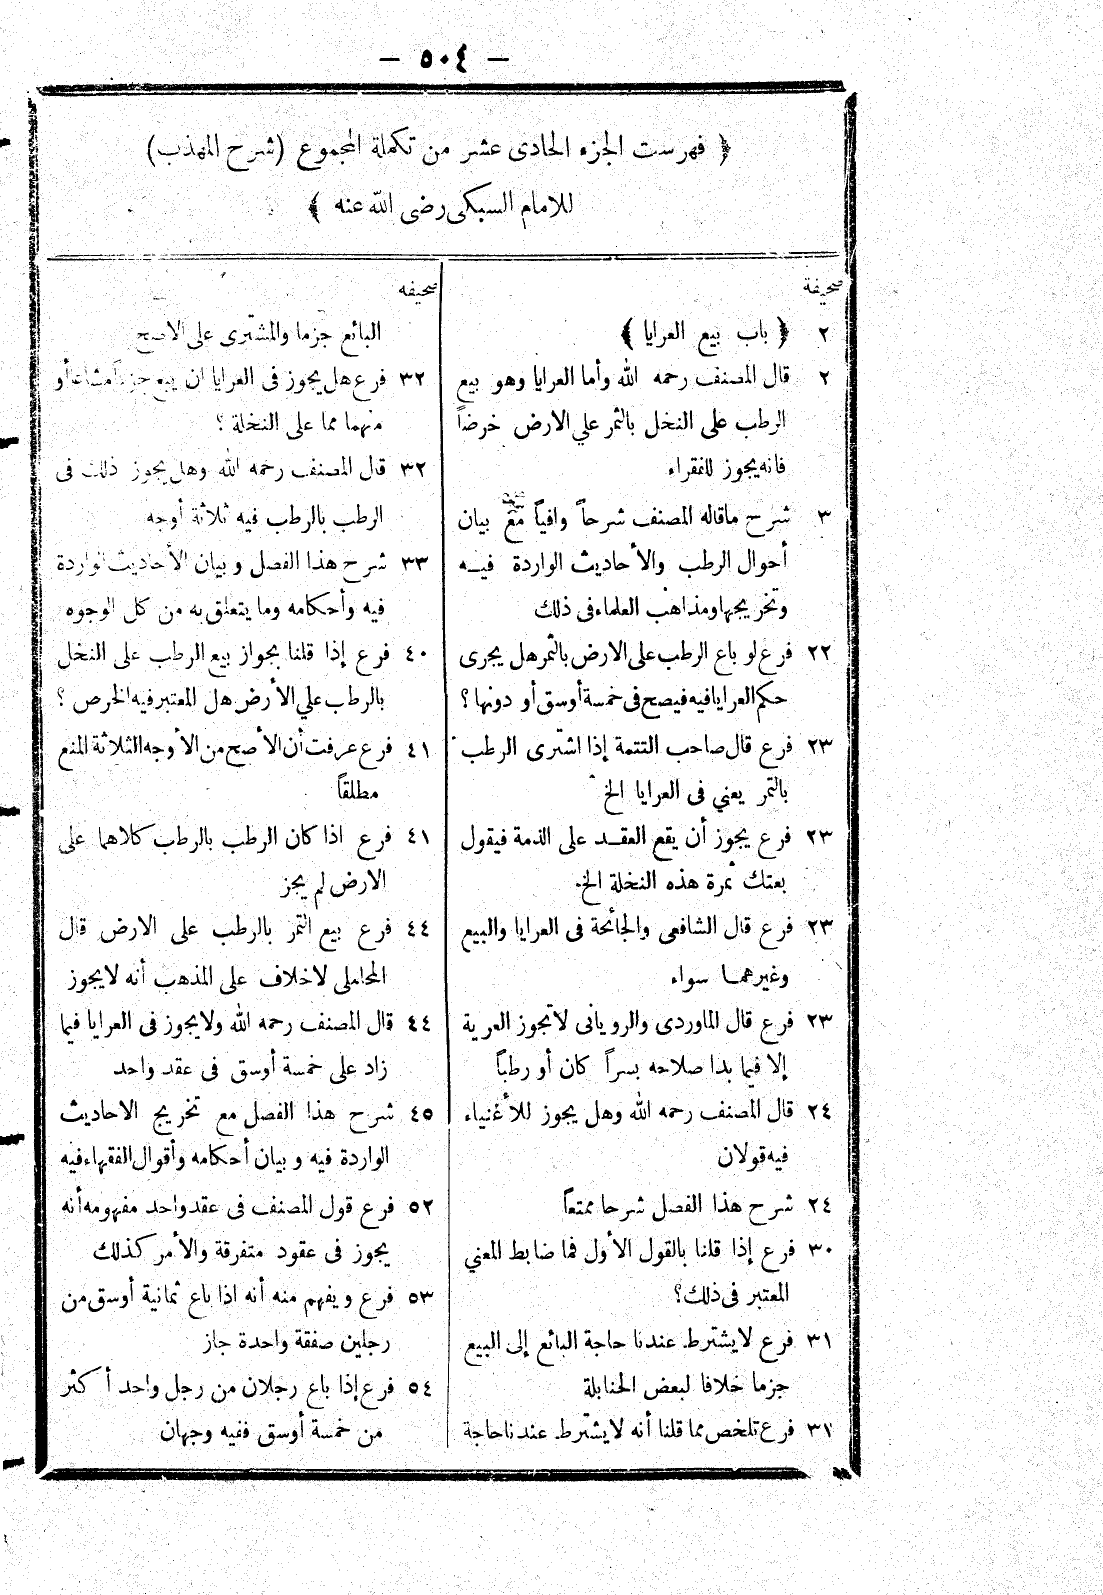 — ٥٠٤ —
﴿ فهرست الجزء الحادى عشر من تكملة المجموع (شرح المهذب)
للامام السبكى رضى الله عنه ﴾
صحيفة
٢ ﴿ باب بيع العرايا ﴾
٢ قال المصنف رحمه الله وأما العرايا وهو بيع
الرطب على النخل بالتمر علي الارض خرصاً
فانه يجوز للفقراء
٣ شرح ماقاله المصنف شرحاً وافياً مع بيان
أحوال الرطب والأحاديث الواردة فيه
وتخريجها ومذاهب العلماء فى ذلك
٢٢ فرع لو باع الرطب على الارض بالتمر هل يجرى
حكم العرايا فيه فيصح فى خمسة أوسق أو دونها ؟
٢٣ فرع قال صاحب التتمة إذا اشترى الرطب
بالتمر يعني فى العرايا الخ
٢٣ فرع يجوز أن يقع العقد على الذمة فيقول
بعتك ثمرة هذه النخلة الخ.
٢٣ فرع قال الشافعى والجائحة فى العرايا والبيع
وغيرهما سواء
٢٣ فرع قال الماوردى والرويانى لاتجوز العرية
إلا فيما بدا صلاحه بسراً كان أو رطباً
٢٤ قال المصنف رحمه الله وهل يجوز للأغنياء
فيه قولان
٢٤ شرح هذا الفصل شرحا ممتعاً
٣٠ فرع إذا قلنا بالقول الأول فما ضابط المعني
المعتبر فى ذلك؟
٣١ فرع لا يشترط عندنا حاجة البائع إلى البيع
جزما خلافا لبعض الحنابلة
٣١ فرع تلخص مما قلنا أنه لا يشترط عندنا حاجة
صحيفه
البائع جزما والمشترى على الاصح
٣٢ فرع هل يجوز فى العرايا ان يبيع جزءاً مشاعا أو
منهما مما على النخلة ؟
٣٢ قال المصنف رحمه الله وهل يجوز ذلك فى
الرطب بالرطب فيه ثلاثة أوجه
٣٣ شرح هذا الفصل وبيان الأحاديث الواردة
فيه وأحكامه وما يتعلق به من كل الوجوه
٤٠ فرع إذا قلنا بجواز بيع الرطب على النخل
بالرطب علي الأرض هل المعتبر فيه الخرص ؟
٤١ فرع عرفت أن الأصح من الأوجه الثلاثة المنع
مطلقاً
٤١ فرع اذا كان الرطب بالرطب كلاهما على
الارض لم يجز
٤٤ فرع بيع التمر بالرطب على الارض قال
المحاملى لاخلاف على المذهب أنه لايجوز
٤٤ قال المصنف رحمه الله ولايجوز فى العرايا فيما
زاد على خمسة أوسق فى عقد واحد
٤٥ شرح هذا الفصل مع تخريج الاحاديث
الواردة فيه وبيان أحكامه وأقوال الفقهاء فيه
٥٢ فرع قول المصنف فى عقد واحد مفهومه أنه
يجوز فى عقود متفرقة والأمر كذلك
٥٣ فرع ويفهم منه أنه اذا باع ثمانية أوسق من
رجلين صفقة واحدة جاز
٥٤ فرع إذا باع رجلان من رجل واحد أكثر
من خمسة أوسق ففيه وجهان